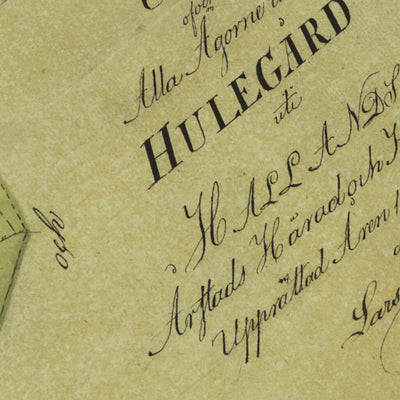 ofv
Alla Ägorne
HULEGÅRD
uti
HALLANDS
Arstads Härad och
Upprättad Åren 1
Lars
och